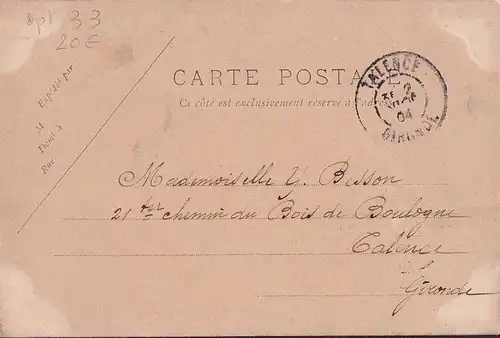 dpt 33
20€
Expédié par
M
Demt à
Rue
CARTE POSTA
Ce côté est exclusivement réservé à l'adresse
TALENCE
2
04
GIRONDE
Mademoiselle Y. Besson
21 ter chemin du Bois de Boulogne
Talence
Gironde